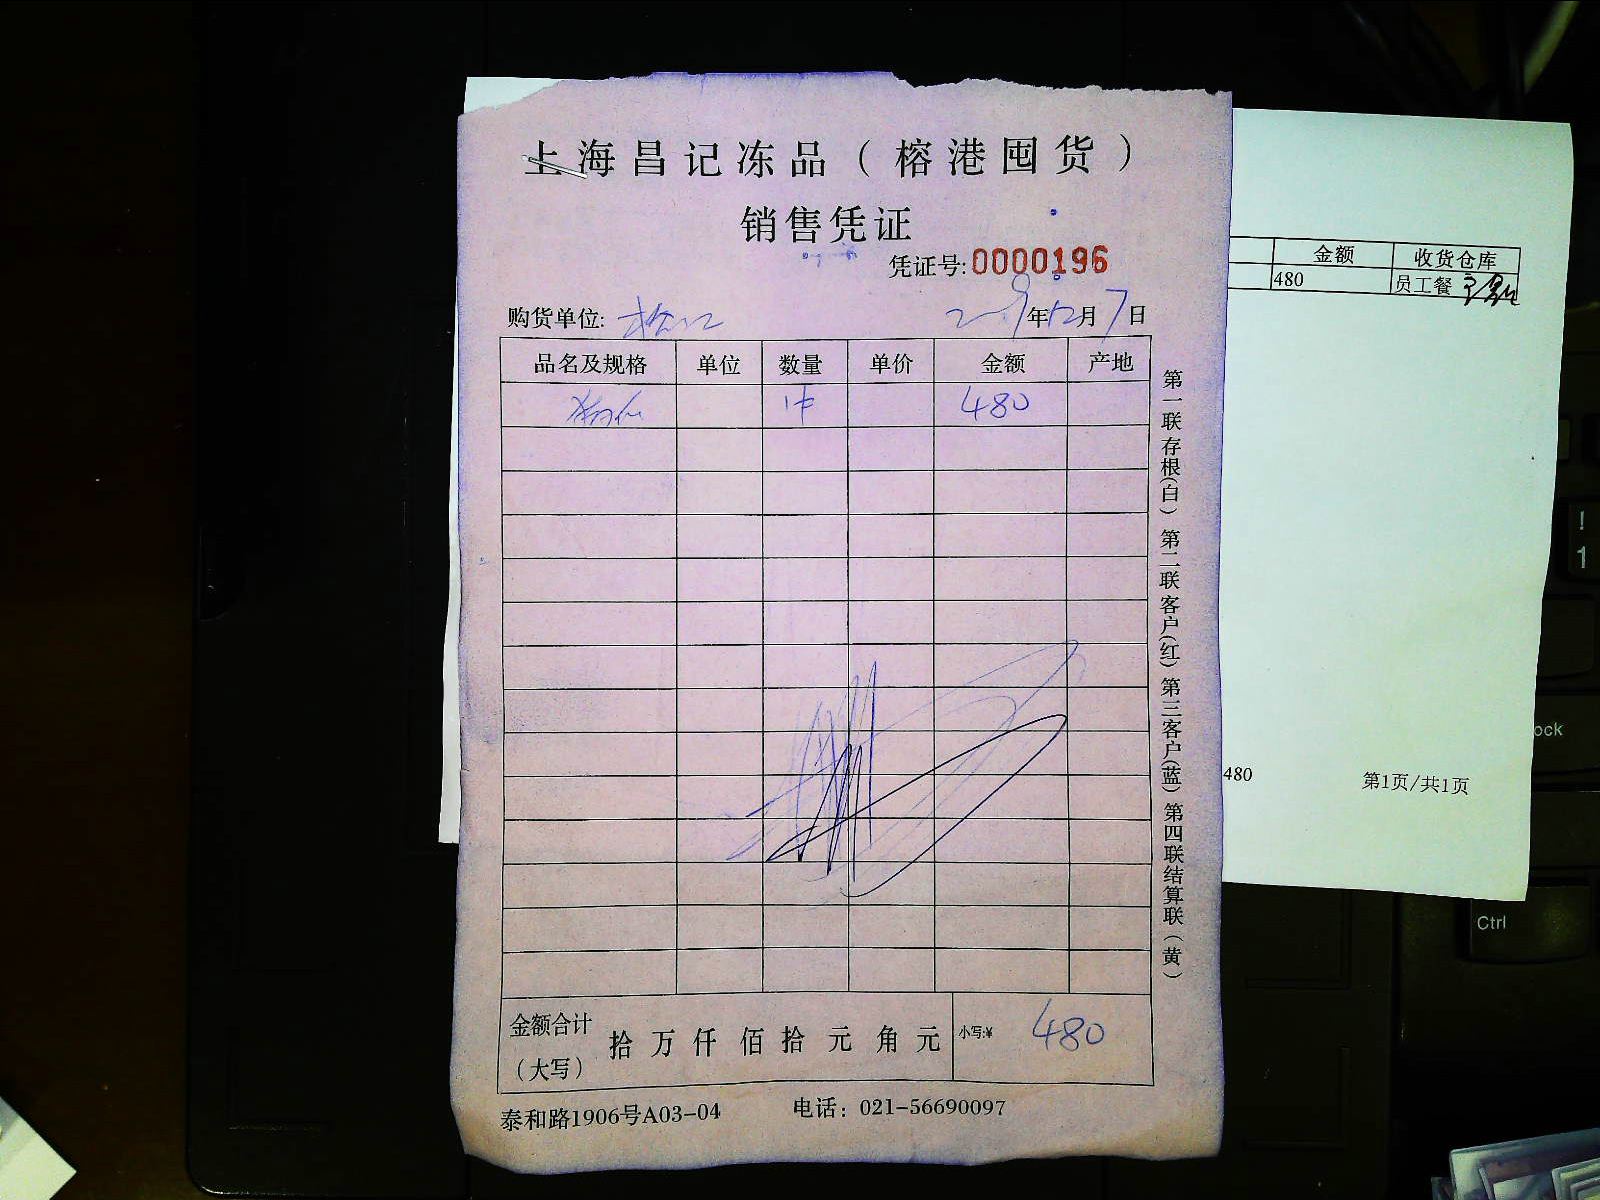 上海昌记冻品（榕港囤货）
销售凭证
凭证号:0000196
购货单位:
2009年12月7日
品名及规格 单位 数量 单价 金额 产地
1件 480
第一联存根(白) 第二联客户(红) 第三客户(蓝) 第四联结算联(黄)
金额合计（大写） 拾 万 仟 佰 拾 元 角 元 小写:¥ 480
泰和路1906号A03-04 电话：021-56690097
金额 收货仓库
480 员工餐
480 第1页/共1页
!
1
ock
Ctrl